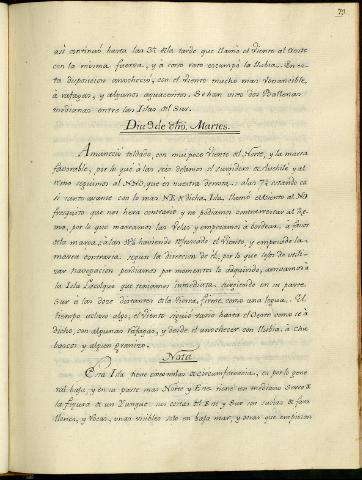 79
asi continuó hasta las 3½ de la tarde que llamó el viento al oeste
con la misma fuerza, y à corto rato escampó la llubia. En es-
ta disposicion anocheció, con el viento mucho mas bonancible,
à rafagas, y algunos aguaceritos. Se han visto dos Ballenas
medianas entre las Islas del Sur.
Dia 9 de dho. Martes.
Amaneció toldado, con mui poco viento del Norte, y la marea
favorable, por lo que à las seis dejamos el surgidero de
remo seguimos al NNO, que es nuestra derrota: a las 7½ estando ca-
si tanto avante con lo mas NE de dicha Isla, llamó el viento al NO
fresquito que nos hera contrario y no podiamos contrarrestar al Re-
mo, por lo que mareamos las velas y empezamos à bordear, à favor
de la marea, à las 8½ haviendo refrescado el viento, y empezado la
marea contraria, segun la direccion de el, por lo que lejos de utili-
zar navegacion perdiamos por momentos lo adquirido, arrivamos à
la Isla que teniamos inmediata, surgiendo en su parte
Sur à las doze distantes de la tierra, firme como una legua. El
tiempo aclaró algo, el viento siguió vario hasta el Oeste como se à
dicho, con algunas rafagas, y desde el anochecer con llubia, à chu-
bascos y algun granizo.
Nota
Esta Isla tiene cinco millas de circumferencia, es por lo gene-
ral baja, y en su parte mas Norte y Este tiene un mediano Serro de
la figura de un Yunque: sus costas del Este y Sur son sucias de fara-
llones, y rocas, unas visibles solo en baja mar, y otras que empiezan